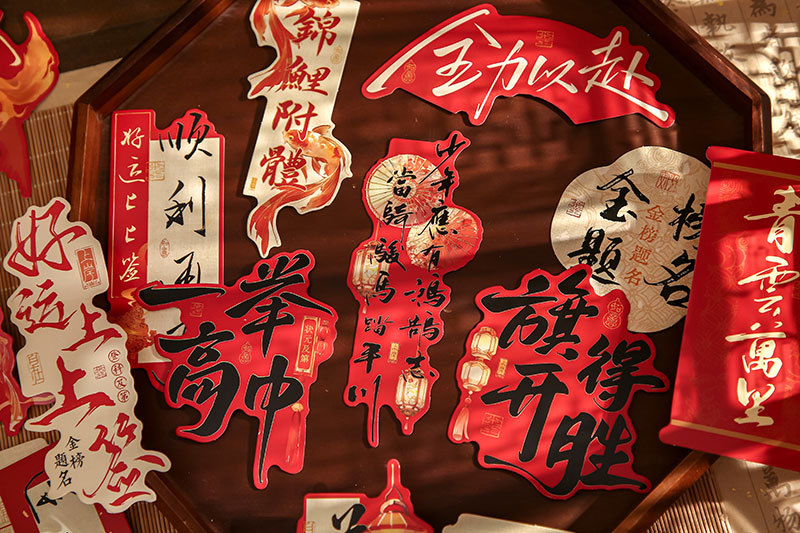 錦鯉附體
全力以赴
好运上上签
順利
少年應有鴻鵠志
當騎駿馬踏平川
金榜題名
金榜題名
青雲萬里
好运上上签
上上签
登科及第
金榜題名
一举高中
状元及第
旗开得胜